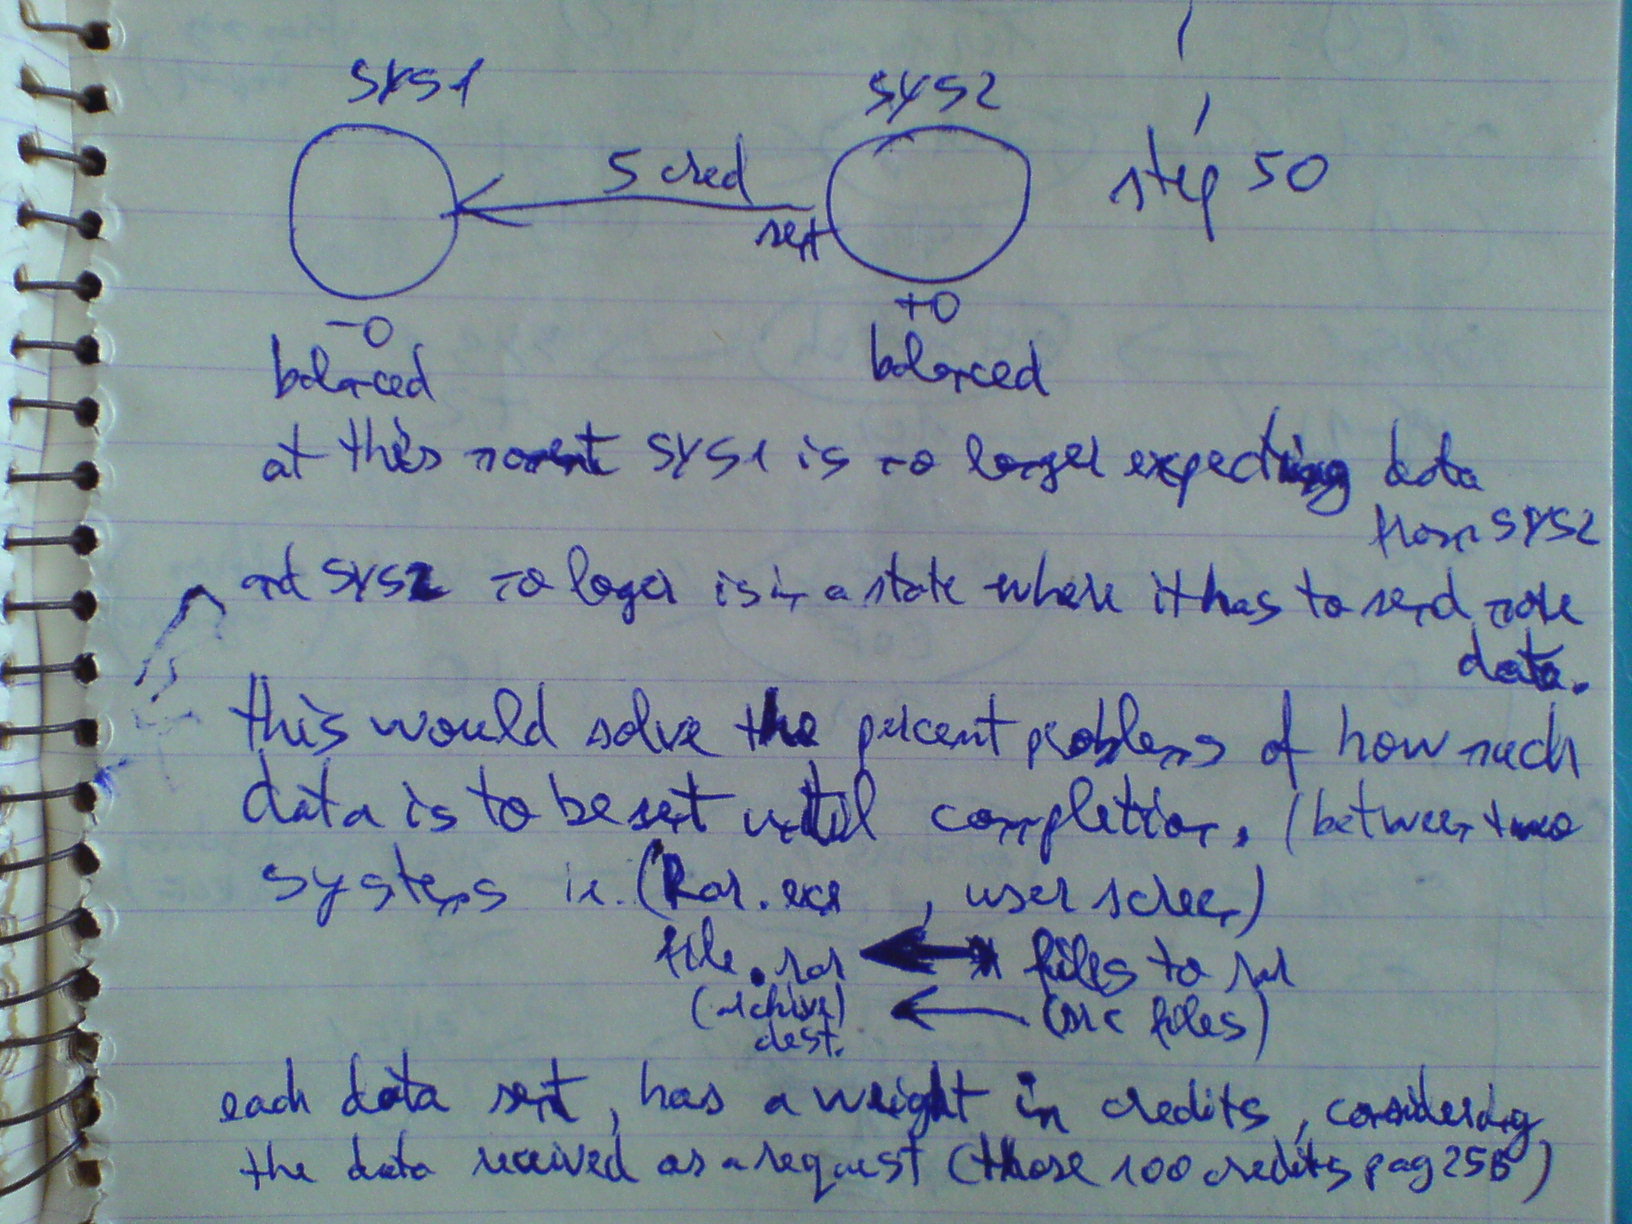 SYS1 SYS2
5 cred step 50
sent
-0 +0
balanced balanced
at this moment SYS1 is no longer expecting data
from SYS2
and SYS2 no longer is in a state where it has to send more
data.
this would solve the percent problems of how much
data is to be sent until completion, (between two
systems ie. (Rar.exe , user screen)
file.rar files to rar
(archive) (src files)
dest.
each data sent, has a weight in credits, considering
the data received as a request (those 100 credits pag 25B)